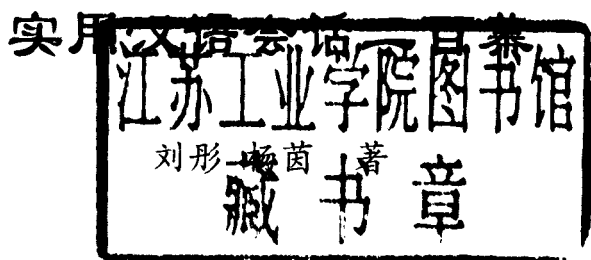 实用汉语会话一百幕
江苏工业学院图书馆
刘彤 杨茵 著
藏书章